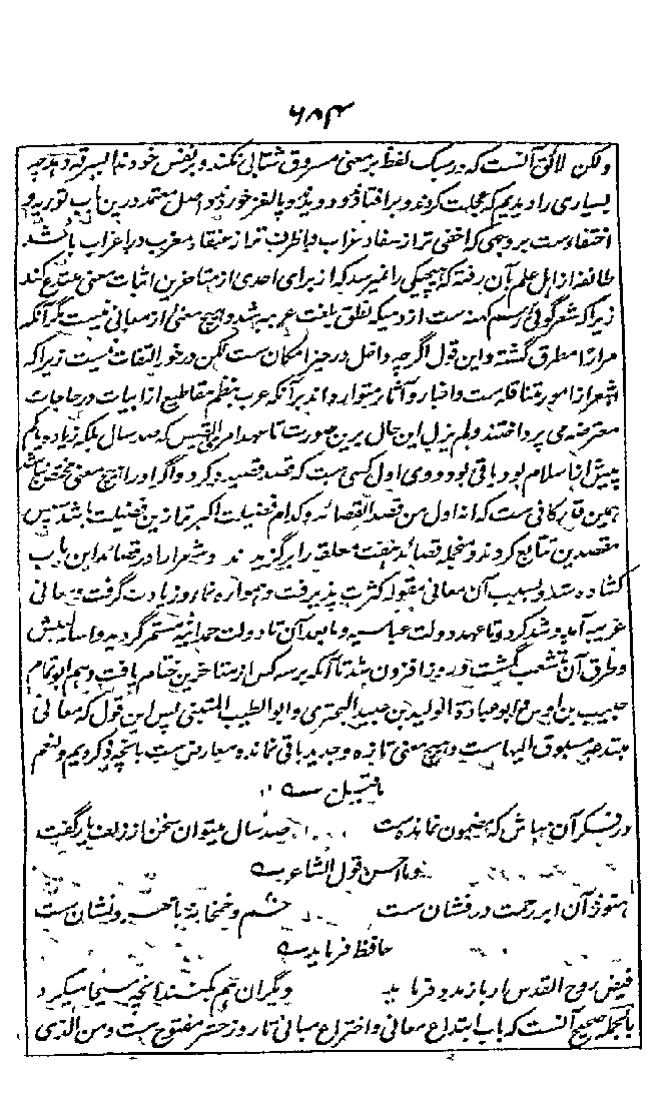 ۴۷۶
ولکن لائق آنست که در سبک لفظ بر معنی مسروق شتابی نکند و بر نفس خود ندا السرقه ندهد چه
بسیاری را دیدیم که عجلت کردند و بر افتادند و دویدند و پالغز خوردند و اصل معتمد درین باب توریه و
اختفاست بر وجهی که اخفی تر از سفاد غراب و اظرف تر از عنقاء مغرب در اغراب باشد
طائفه از اهل علم آن رفته که هیچیکی را نمیرسد که از برای احدی از متاخرین اثبات معنی مبتدع کند
زیرا که شعر گوئی رسم کهنه است از دمیکه نطق بلغت عربیه شد و هیچ معنی از معانی نیست مگر آنکه
مرارا مطرق گشته و این قول اگرچه داخل در حیز امکان ست لکن در خور التفات نیست زیرا که
اشعر از امور متناقله است و اخبار و آثار متوارد اند بر آنکه عرب بنظم مقاطیع از ابیات در حاجات
معترضه می پرداختند و لم یزل این حال برین صورت تا عهد امرء القیس که صد سال بلکه زیاده یا کم
پیش از اسلام بود باقی بود و وی اول کسی ست که قصد قصیده کرد و اگر او را هیچ معنی مخترع نباشد
همین قدر کافی ست که انه اول من قصد القصائد و کدام فضیلت اکبر تر ازین فضیلت باشد پس
مقصدین تتابع کردند و منجمله قصائد هفت معلقه را برگزیدند و شعرا را در قصائد این باب
کشاده شد و بسبب آن معانی مقوله کثرت پذیرفت و همواره نماء و زیادت گرفت و معانی
غریبه آمد و شد کرد و تا عهد دولت عباسیه و ما بعد آن تا دولت حمدانیه مستمر گردید و اسالیبش
و طرق آن متشعب گشت و روز افزون شد تا آنکه بر سه کس از متاخرین ختام یافت و هم ابو تمام
حبیب بن اوس و ابو عبادة الولید بن عبید البحتری و ابو الطیب المتنبی پس این قول که معانی
مبتدعه مسبوق الیها ست و هیچ معنی تازه و جدید باقی نمانده معارض ست بانچه ذکر کردیم و لنعم
ما قیل سه
در فکر آن مباش که مضمون نمانده ست صد سال میتوان سخن از زلف یار گفت
و ما احسن قول الشاعر سه
هنوز آن ابر رحمت در فشان ست خم و خمخانه با مهر و نشان ست
حافظ فرماید سه
فیض روح القدس ار باز مدد فرماید دیگران هم بکنند انچه مسیحا میکرد
بالجمله صحیح آنست که باب ابتداع معانی و اختراع مبانی تا روز حشر مفتوح ست و من الذی